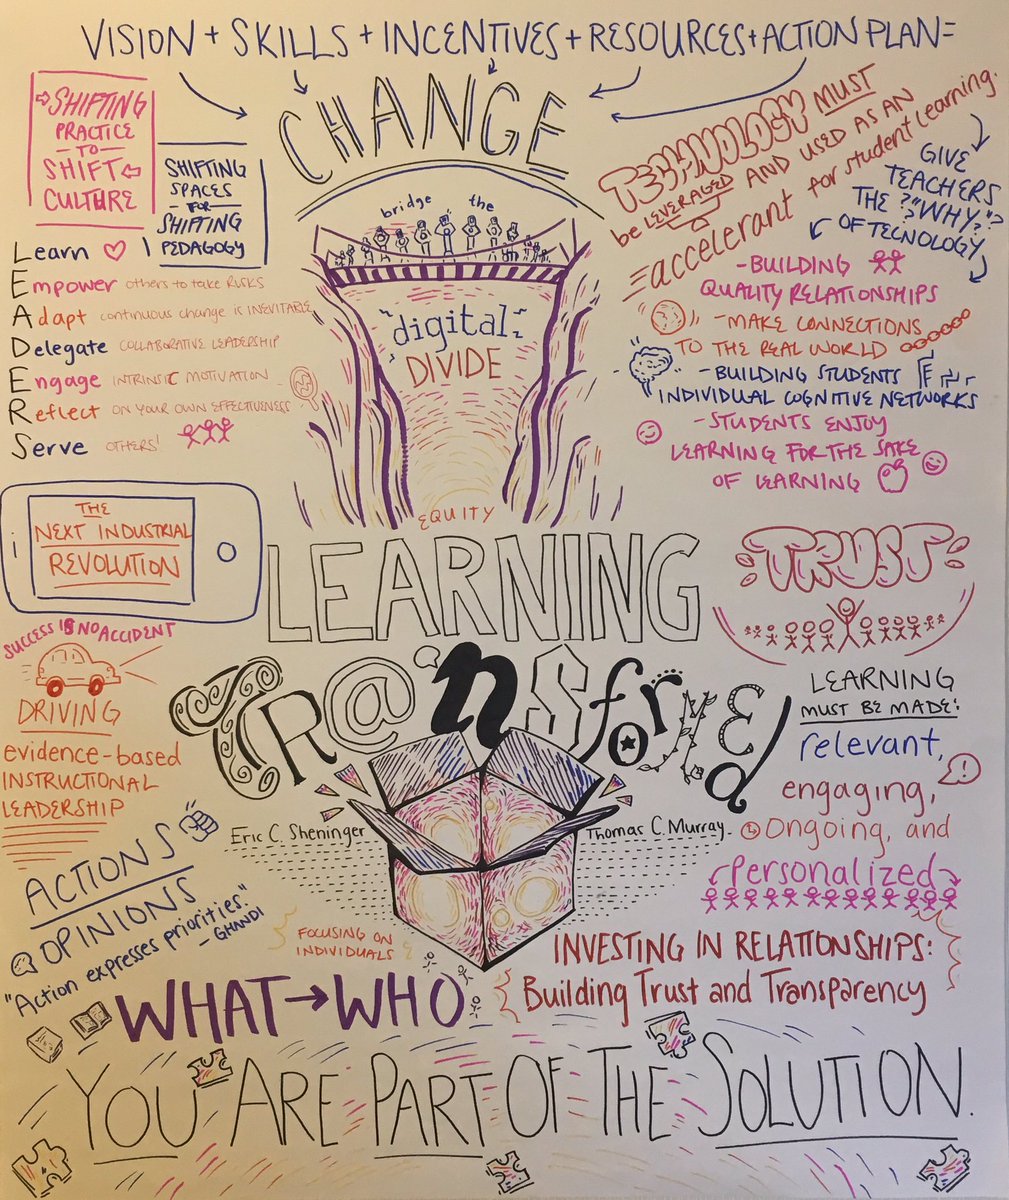 VISION + SKILLS + INCENTIVES + RESOURCES + ACTION PLAN =
CHANGE
SHIFTING
PRACTICE
-TO-
SHIFT
CULTURE
SHIFTING
SPACES
-FOR-
SHIFTING
PEDAGOGY
Learn
Empower OTHERS TO TAKE RISKS
Adapt CONTINUOUS CHANGE IS INEVITABLE
Delegate COLLABORATIVE LEADERSHIP
Engage INTRINSIC MOTIVATION
Reflect ON YOUR OWN EFFECTIVENESS
Serve OTHERS!
bridge the
digital
DIVIDE
EQUITY
TECHNOLOGY MUST
be LEVERAGED AND USED AS AN
=accelerant for student learning.
GIVE
TEACHERS
THE ?"WHY."?
OF TECNOLOGY
-BUILDING
QUALITY RELATIONSHIPS
-MAKE CONNECTIONS
TO THE REAL WORLD
-BUILDING STUDENTS
INDIVIDUAL COGNITIVE NETWORKS
-STUDENTS ENJOY
LEARNING FOR THE SAKE
OF LEARNING
THE
NEXT INDUSTRIAL
REVOLUTION
LEARNING
TR@NSforMEd
Eric C. Sheninger
Thomas C. Murray.
TRUST
SUCCESS IS NO ACCIDENT
DRIVING
evidence-based
INSTRUCTIONAL
LEADERSHIP
LEARNING
MUST BE MADE:
relevant,
engaging,
Ongoing, and
Personalized
ACTIONS
OPINIONS
"Action expresses priorities."
- GHANDI
FOCUSING ON
INDIVIDUALS
WHAT→WHO
INVESTING IN RELATIONSHIPS:
Building Trust and Transparency
YOU ARE PART OF THE SOLUTION.